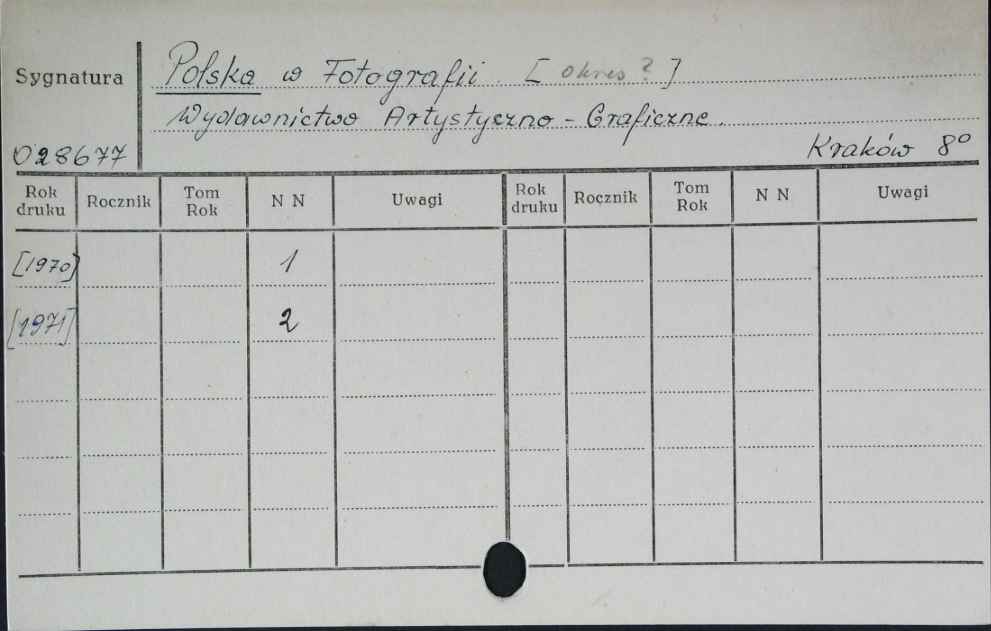 Sygnatura
Polska w Fotografii. [okres?]
Wydawnictwo Artystyczno-Graficzne.
028677
Kraków 8°
Rok druku Rocznik Tom Rok N N Uwagi Rok druku Rocznik Tom Rok N N Uwagi
[1970] 1
[1971] 2